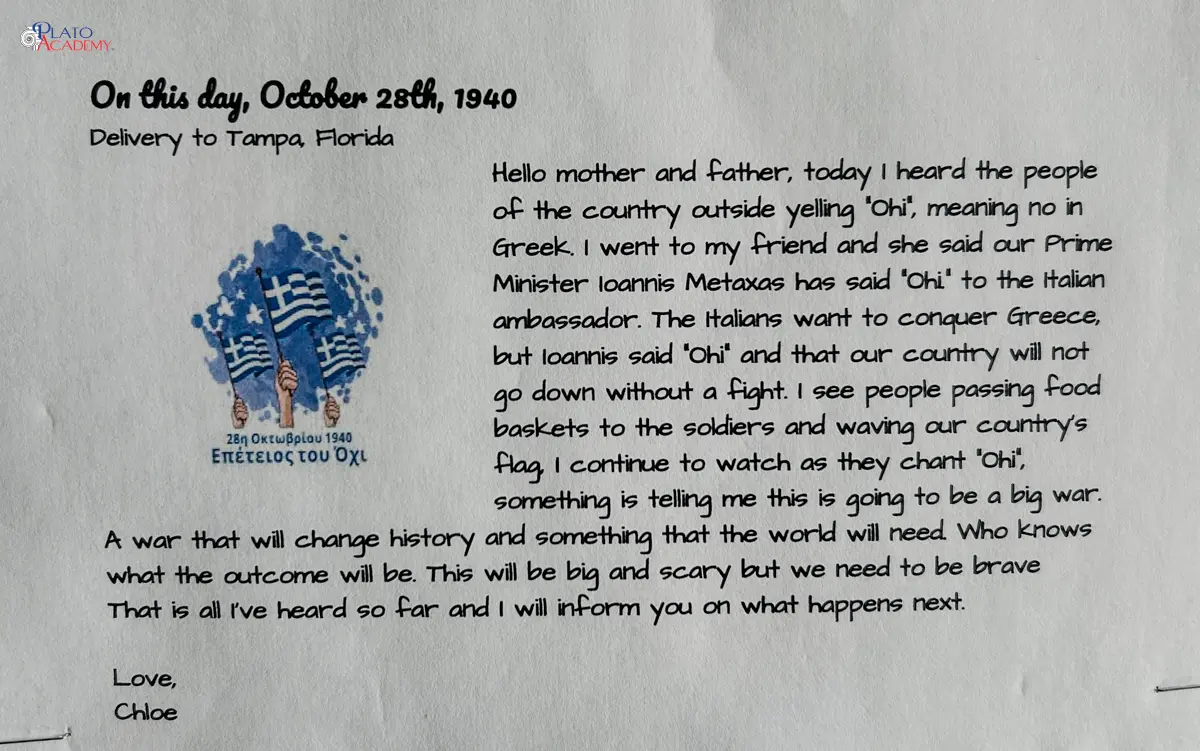 PLATO
ACADEMY
On this day, October 28th, 1940
Delivery to Tampa, Florida
Hello mother and father, today I heard the people
of the country outside yelling "Ohi", meaning no in
Greek. I went to my friend and she said our Prime
Minister Ioannis Metaxas has said "Ohi." to the Italian
ambassador. The Italians want to conquer Greece,
but Ioannis said "Ohi" and that our country will not
go down without a fight. I see people passing food
baskets to the soldiers and waving our country's
flag, I continue to watch as they chant "Ohi",
something is telling me this is going to be a big war.
A war that will change history and something that the world will need. Who knows
what the outcome will be. This will be big and scary but we need to be brave
That is all I've heard so far and I will inform you on what happens next.
28η Οκτωβρίου 1940
Επέτειος του Όχι
Love,
Chloe